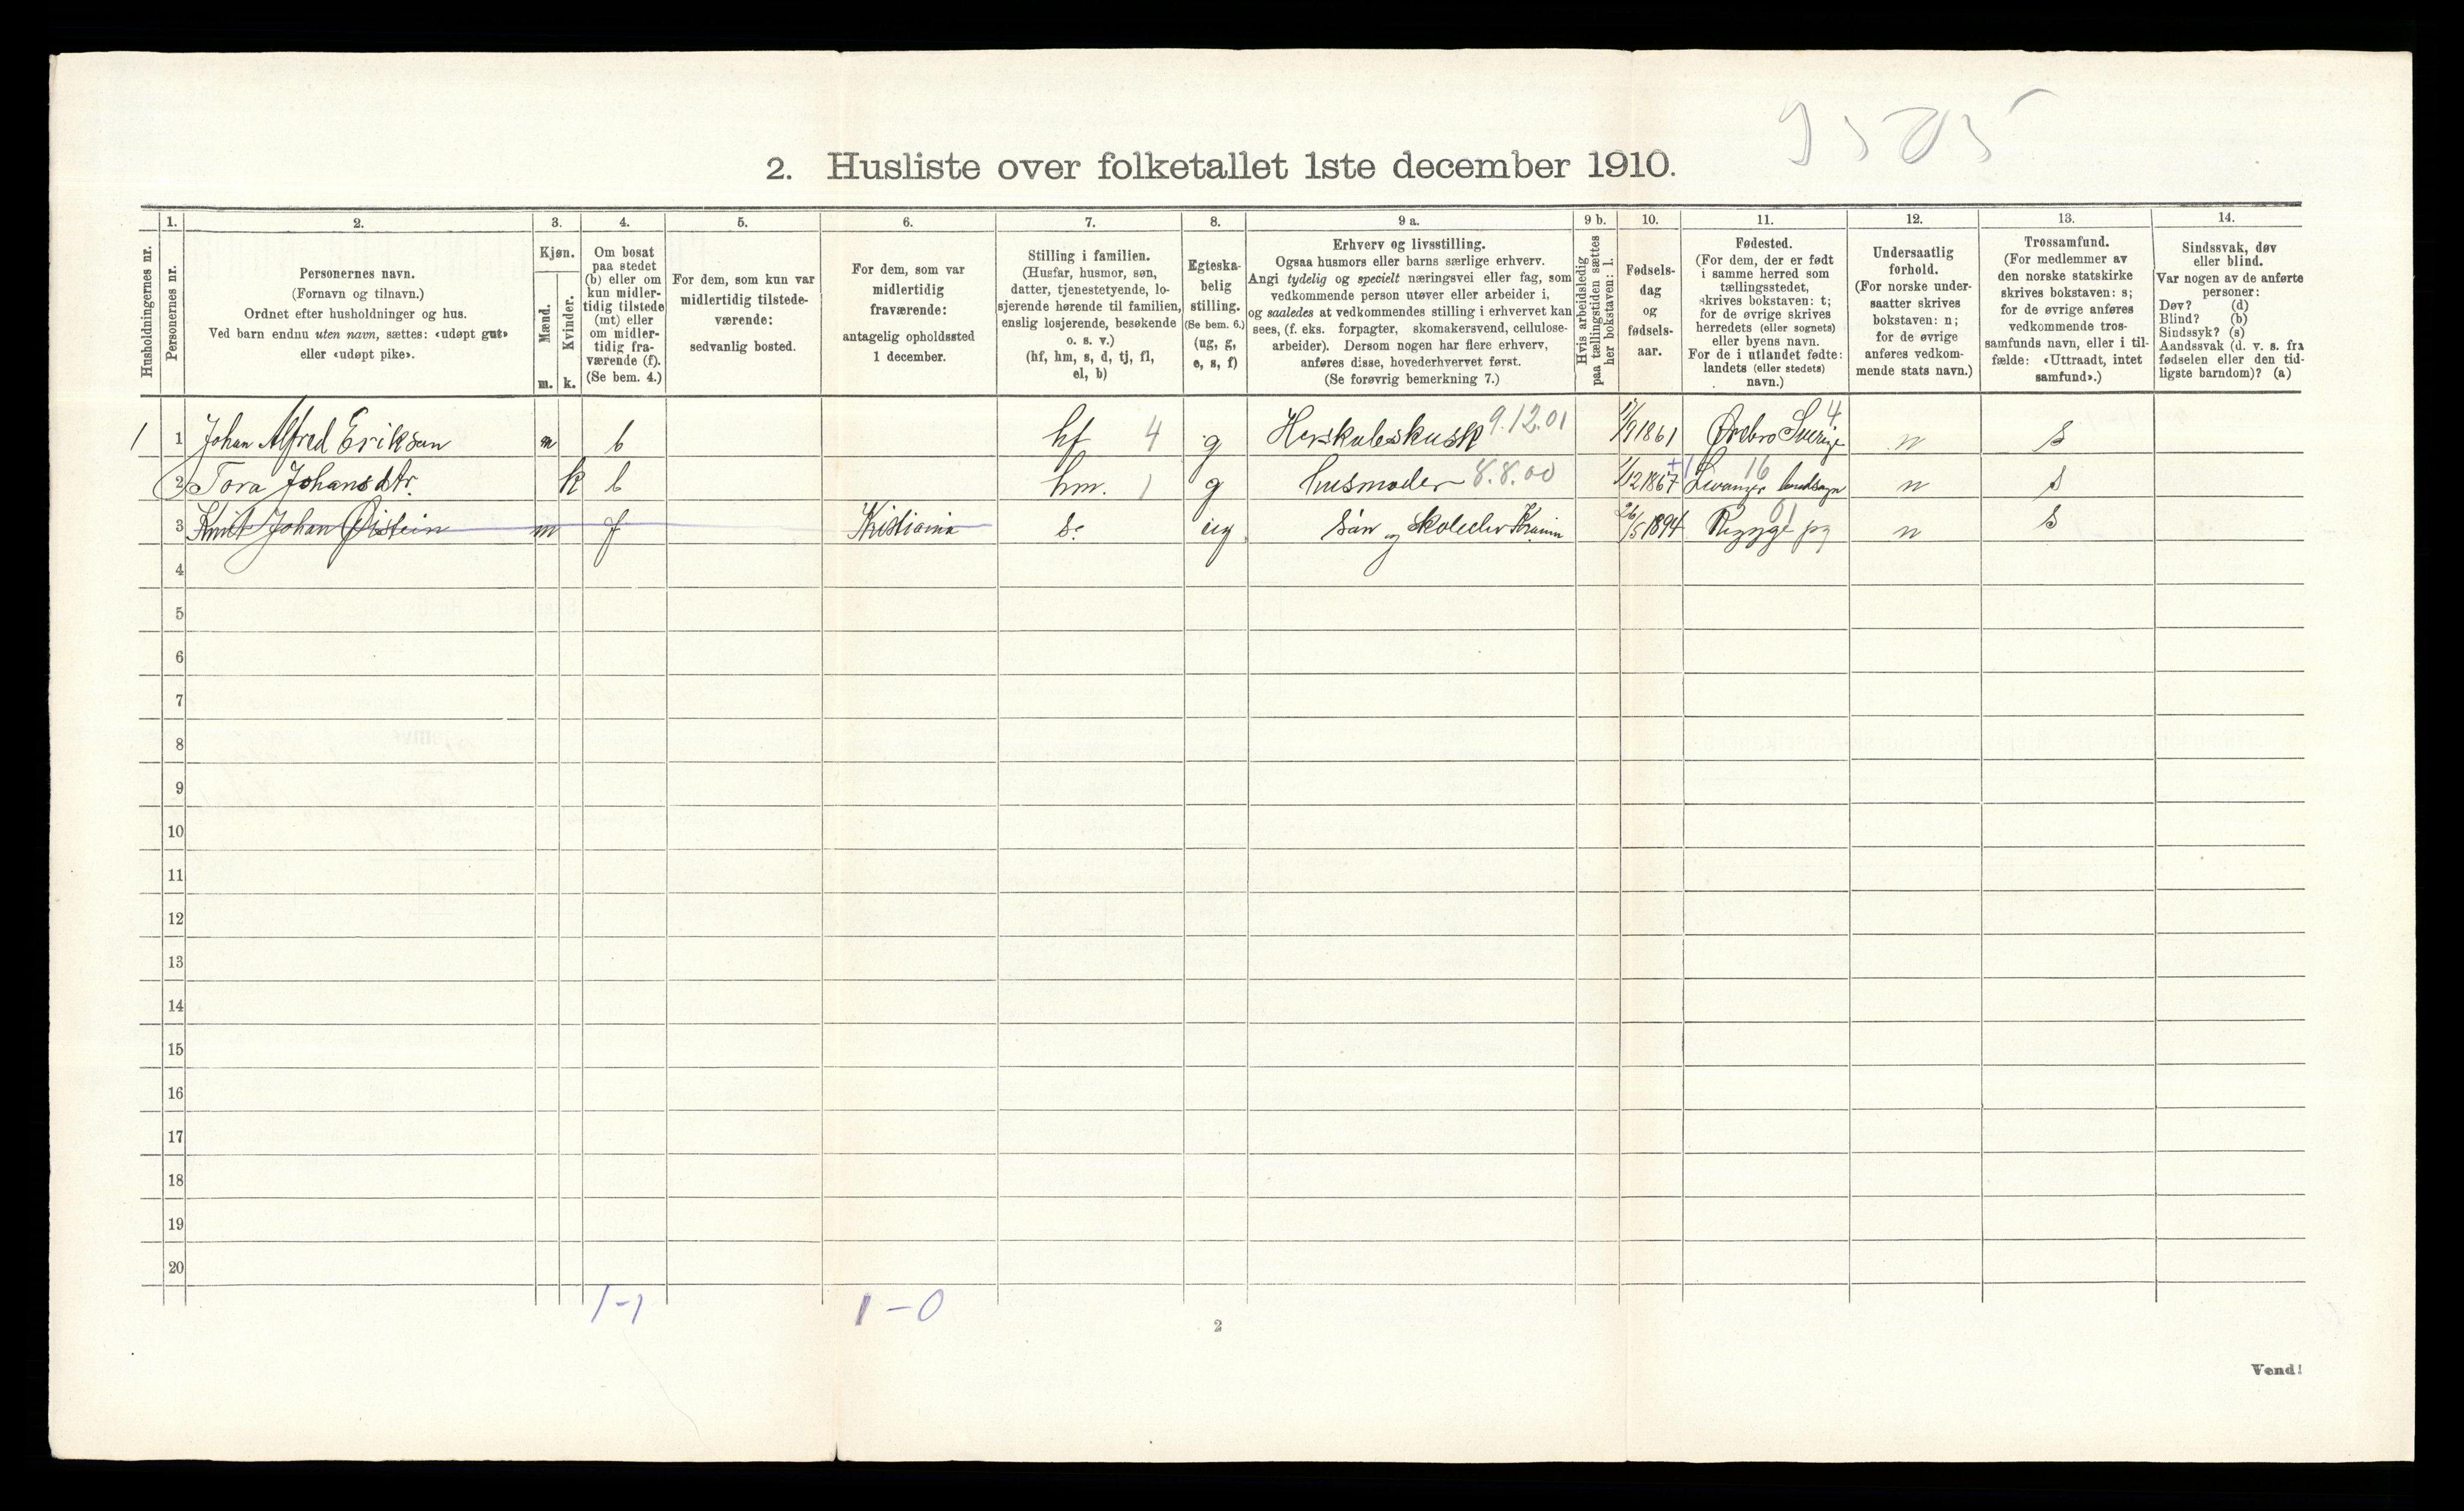 2. Husliste over folketallet 1ste december 1910.
Husholdningernes nr.
1.
Personernes nr.
2.
Personernes navn.
(Fornavn og tilnavn.)
Ordnet efter husholdninger og hus.
Ved barn endnu uten navn, sættes: «udøpt gut»
eller «udøpt pike».
3.
Kjøn.
Mænd.
Kvinder.
m. k.
4.
Om bosat
paa stedet
(b) eller om
kun midler-
tidig tilstede
(mt) eller
om midler-
tidig fra-
værende (f).
(Se bem. 4.)
5.
For dem, som kun var
midlertidig tilstede-
værende:
sedvanlig bosted.
6.
For dem, som var
midlertidig
fraværende:
antagelig opholdssted
1 december.
7.
Stilling i familien.
(Husfar, husmor, søn,
datter, tjenestetyende, lo-
sjerende hørende til familien,
enslig losjerende, besøkende
o. s. v.)
(hf, hm, s, d, tj, fl,
el, b)
8.
Egteska-
belig
stilling.
(Se bem. 6.)
(ug, g,
e, s, f)
9 a.
Erhverv og livsstilling.
Ogsaa husmors eller barns særlige erhverv.
Angi tydelig og specielt næringsvei eller fag, som
vedkommende person utøver eller arbeider i,
og saaledes at vedkommendes stilling i erhvervet kan
sees, (f. eks. forpagter, skomakersvend, cellulose-
arbeider). Dersom nogen har flere erhverv,
anføres disse, hovederhvervet først.
(Se forøvrig bemerkning 7.)
9 b.
Hvis arbeidsledig
paa tællingstiden sættes
her bokstaven: l.
10.
Fødsels-
dag
og
fødsels-
aar.
11.
Fødested.
(For dem, der er født
i samme herred som
tællingsstedet,
skrives bokstaven: t;
for de øvrige skrives
herredets (eller sognets)
eller byens navn.
For de i utlandet fødte:
landets (eller stedets)
navn.)
12.
Undersaatlig
forhold.
(For norske under-
saatter skrives
bokstaven: n;
for de øvrige
anføres vedkom-
mende stats navn.)
13.
Trossamfund.
(For medlemmer av
den norske statskirke
skrives bokstaven: s;
for de øvrige anføres
vedkommende tros-
samfunds navn, eller i til-
fælde: «Uttraadt, intet
samfund».)
14.
Sindssvak, døv
eller blind.
Var nogen av de anførte
personer:
Døv? (d)
Blind? (b)
Sindssyk? (s)
Aandssvak (d. v. s. fra
fødselen eller den tid-
ligste barndom)? (a)
1 1 Johan Alfred Eriksen m b hf 4 g 9.12.01 1861 Ørebro Sverige 4 n s
2 Tora Johansdtr. k b hm. 1 g husmoder 8.8.00 1/12 1867 Levanger landsogn 16 n s
3 Knut Johan Øistein m f Kristiania s. ug Sön og skoleelev 26/5 1894 Rygge 01 n s
4
5
6
7
8
9
10
11
12
13
14
15
16
17
18
19
20
1-1 1-0
2
Vend!